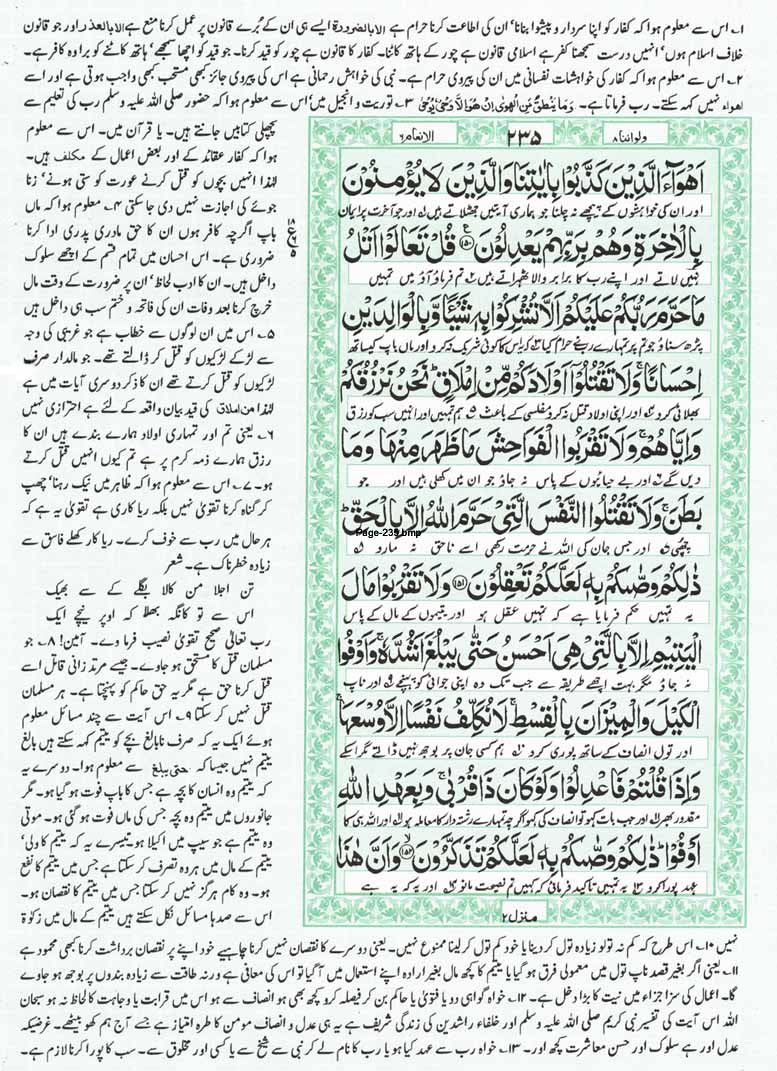 ۱۔ اس سے معلوم ہوا کہ کفار کو اپنا سردار و پیشوا بنانا، ان کی اطاعت کرنا حرام ہے الا بالضرورۃ ایسے ہی ان کے بُرے قانون پر عمل کرنا منع ہے الا بالعذر اور جو قانون
خلاف اسلام ہوں، انہیں درست سمجھنا کفر ہے اسلامی قانون ہے چور کے ہاتھ کاٹنا۔ کفار کا قانون ہے چور کو قید کرنا۔ جو قید کو اچھا سمجھے، ہاتھ کاٹنے کو برا وہ کافر ہے۔
۲۔ اس سے معلوم ہوا کہ کفار کی خواہشات نفسانی میں ان کی پیروی حرام ہے۔ نبی کی خواہش رحمانی ہے اس کی پیروی جائز کبھی مستحب کبھی واجب ہوتی ہے اور اسے
اھواء نہیں کہہ سکتے۔ رب فرماتا ہے۔ وَمَا یَنْطِقُ عَنِ الْهَوٰی اِنْ هُوَ اِلَّا وَحْیٌ یُّوْحٰی ۳۔ توریت و انجیل میں، اس سے معلوم ہوا کہ حضور صلی اللہ علیہ وسلم رب کی تعلیم سے
پچھلی کتابیں جانتے ہیں۔ یا قرآن میں۔ اس سے معلوم
ہوا کہ کفار عقائد کے اور بعض اعمال کے مکلف ہیں۔
لہٰذا انہیں بچوں کو قتل کرنے عورت کو ستی ہونے، زنا
جوئے کی اجازت نہیں دی جا سکتی ۴۔ معلوم ہوا کہ ماں
باپ اگرچہ کافر ہوں ان کا حق مادری پدری ادا کرنا
ضروری ہے۔ اس احسان میں تمام قسم کے اچھے سلوک
داخل ہیں۔ ان کا ادب لحاظ، ان پر ضرورت کے وقت مال
خرچ کرنا بعد وفات ان کی فاتحہ و ختم سب ہی داخل ہیں
۵۔ اس میں ان لوگوں سے خطاب ہے جو غریبی کی وجہ
سے لڑکے لڑکیوں کو قتل کر ڈالتے تھے۔ جو مالدار صرف
لڑکیوں کو قتل کرتے تھے ان کا ذکر دوسری آیات میں ہے
لہٰذا من املاق کی قید بیان واقعہ کے لئے ہے احترازی نہیں
۶۔ یعنی تم اور تمہاری اولاد ہمارے بندے ہیں ان کا
رزق ہمارے ذمہ کرم پر ہے تم کیوں انہیں قتل کرتے
ہو۔ ۷۔ اس سے معلوم ہوا کہ ظاہر میں نیک رہنا، چھپ
کر گناہ کرنا تقویٰ نہیں بلکہ ریا کاری ہے تقویٰ یہ ہے کہ
ہر حال میں رب سے خوف کرے۔ ریا کار کھلے فاسق سے
زیادہ خطرناک ہے۔ شعر
تن اجلا من کالا بگلے کے سے بھیک
اس سے تو کانگہ بھلا کہ اوپر نیچے ایک
رب تعالیٰ صحیح تقویٰ نصیب فرما دے۔ آمین! ۸۔ جو
مسلمان قتل کا مستحق ہو جاوے۔ جیسے مرتد زانی قاتل اسے
قتل کرنا حق ہے مگر یہ حق حاکم کو پہنچتا ہے۔ ہر مسلمان
قتل نہیں کر سکتا ۹۔ اس آیت سے چند مسائل معلوم
ہوئے ایک یہ کہ صرف نابالغ بچے کو یتیم کہہ سکتے ہیں بالغ
یتیم نہیں جیسا کہ حتی یبلغ سے معلوم ہوا۔ دوسرے یہ
کہ یتیم وہ انسان کا بچہ ہے جس کا باپ فوت ہو گیا ہو۔ مگر
جانوروں میں یتیم وہ بچہ ہے جس کی ماں فوت ہو گئی ہو۔ موتی
وہ یتیم ہے جو سیپ میں اکیلا ہو تیسرے یہ کہ یتیم کا ولی،
یتیم کے مال میں ہر وہ تصرف کر سکتا ہے جس میں یتیم کا نفع
ہو۔ وہ کام ہرگز نہیں کر سکتا جس میں یتیم کا نقصان ہو۔
اس سے صدہا مسائل نکل سکتے ہیں یتیم کے مال میں زکوٰۃ
ولواننا ۸
۲۳۵
الانعام ۶
اَهْوَآءَ الَّذِیْنَ كَذَّبُوْا بِاٰیٰتِنَا وَالَّذِیْنَ لَا یُؤْمِنُوْنَ
اور ان کی خواہشوں کے پیچھے نہ چلنا جو ہماری آیتیں جھٹلاتے ہیں اور جو آخرت پر ایمان
بِالْاٰخِرَةِ وَهُمْ بِرَبِّهِمْ یَعْدِلُوْنَ ﴿۱۵۰﴾ قُلْ تَعَالَوْا اَتْلُ
نہیں لاتے اور اپنے رب کا برابر والا ٹھہراتے ہیں تم فرماؤ آؤ میں تمہیں
مَا حَرَّمَ رَبُّكُمْ عَلَیْكُمْ اَلَّا تُشْرِكُوْا بِهٖ شَیْئًا وَّبِالْوَالِدَیْنِ
پڑھ سناؤں جو تم پر تمہارے رب نے حرام کیا یہ کہ اس کا کوئی شریک نہ کرو اور ماں باپ کیساتھ
اِحْسَانًا وَلَا تَقْتُلُوْۤا اَوْلَادَكُمْ مِّنْ اِمْلَاقٍ نَحْنُ نَرْزُقُكُمْ
بھلائی کرو اور اپنی اولاد قتل نہ کرو مفلسی کے باعث ہم تمہیں اور انہیں سب کو رزق
وَاِیَّاهُمْ وَلَا تَقْرَبُوا الْفَوَاحِشَ مَا ظَهَرَ مِنْهَا وَمَا
دیں گے اور بے حیائیوں کے پاس نہ جاؤ جو ان میں کھلی ہیں اور جو
بَطَنَ وَلَا تَقْتُلُوا النَّفْسَ الَّتِیْ حَرَّمَ اللّٰهُ اِلَّا بِالْحَقِّ
چھپی اور جس جان کی اللہ نے حرمت رکھی اسے ناحق نہ مارو
Page-235.bmp
ذٰلِكُمْ وَصّٰىكُمْ بِهٖ لَعَلَّكُمْ تَعْقِلُوْنَ ﴿۱۵۱﴾ وَلَا تَقْرَبُوْا مَالَ
یہ تمہیں حکم فرمایا ہے کہ تمہیں عقل ہو اور یتیموں کے مال کے پاس
الْیَتِیْمِ اِلَّا بِالَّتِیْ هِیَ اَحْسَنُ حَتّٰی یَبْلُغَ اَشُدَّهٗ وَاَوْفُوا
نہ جاؤ مگر بہت اچھے طریقہ سے جب تک وہ اپنی جوانی کو پہنچے اور ناپ
الْكَیْلَ وَالْمِیْزَانَ بِالْقِسْطِ لَا نُكَلِّفُ نَفْسًا اِلَّا وُسْعَهَا
اور تول انصاف کے ساتھ پوری کرو ہم کسی جان پر بوجھ نہیں ڈالتے مگر اسکے
وَاِذَا قُلْتُمْ فَاعْدِلُوْا وَلَوْ كَانَ ذَا قُرْبٰی وَبِعَهْدِ اللّٰهِ
مقدور بھر اور جب بات کہو تو انصاف کی کہو اگرچہ تمہارے رشتہ دار کا معاملہ ہو اور اللہ ہی کا
اَوْفُوْا ذٰلِكُمْ وَصّٰىكُمْ بِهٖ لَعَلَّكُمْ تَذَكَّرُوْنَ ﴿۱۵۲﴾ وَاَنَّ هٰذَا
عہد پورا کرو یہ تمہیں تاکید فرمائی کہ کہیں تم نصیحت مانو اور یہ کہ یہ ہے
منزل ۲
نہیں ۱۰۔ اس طرح کہ کم نہ تولو زیادہ تول کر دینا یا خود کم تول کر لینا ممنوع نہیں۔ یعنی دوسرے کا نقصان نہیں کرنا چاہیے خود اپنے پر نقصان برداشت کرنا کبھی محمود ہے
۱۱۔ یعنی اگر بغیر قصد ناپ تول میں معمولی فرق ہو گیا یا یتیم کا کچھ مال بغیر ارادہ اپنے استعمال میں آ گیا تو اس کی معافی ہے ورنہ طاقت سے زیادہ بندوں پر بوجھ ہو جاوے
گا۔ اعمال کی سزا جزاء میں نیت کا بڑا دخل ہے۔ ۱۲۔ خواہ گواہی دو یا فتویٰ یا حاکم بن کر فیصلہ کرو کچھ بھی ہو انصاف سے ہو اس میں قرابت یا وجاہت کا لحاظ نہ ہو سبحان
اللہ اس آیت کی تفسیر نبی کریم صلی اللہ علیہ وسلم اور خلفاء راشدین کی زندگی شریف ہے یہ ہی عدل و انصاف مومن کا طرہ امتیاز ہے جسے آج ہم کھو بیٹھے۔ غرضیکہ
عدل اور ہے سلوک اور حسن معاشرت کچھ اور۔ ۱۳۔ خواہ رب سے عہد کیا ہو یا رب کا نام لے کر نبی سے شیخ سے یا کسی اور مخلوق سے۔ سب کا پورا کرنا لازم ہے۔